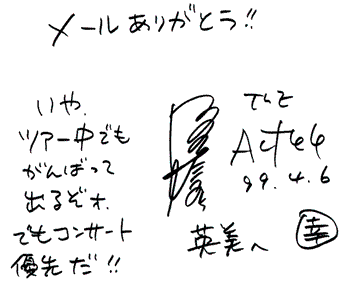 メールありがとう!!
いや、
ツアー中でも
がんばって
出るぞォ.
でもコンサート
優先だ!!
THE
99.4.6
英美へ
幸